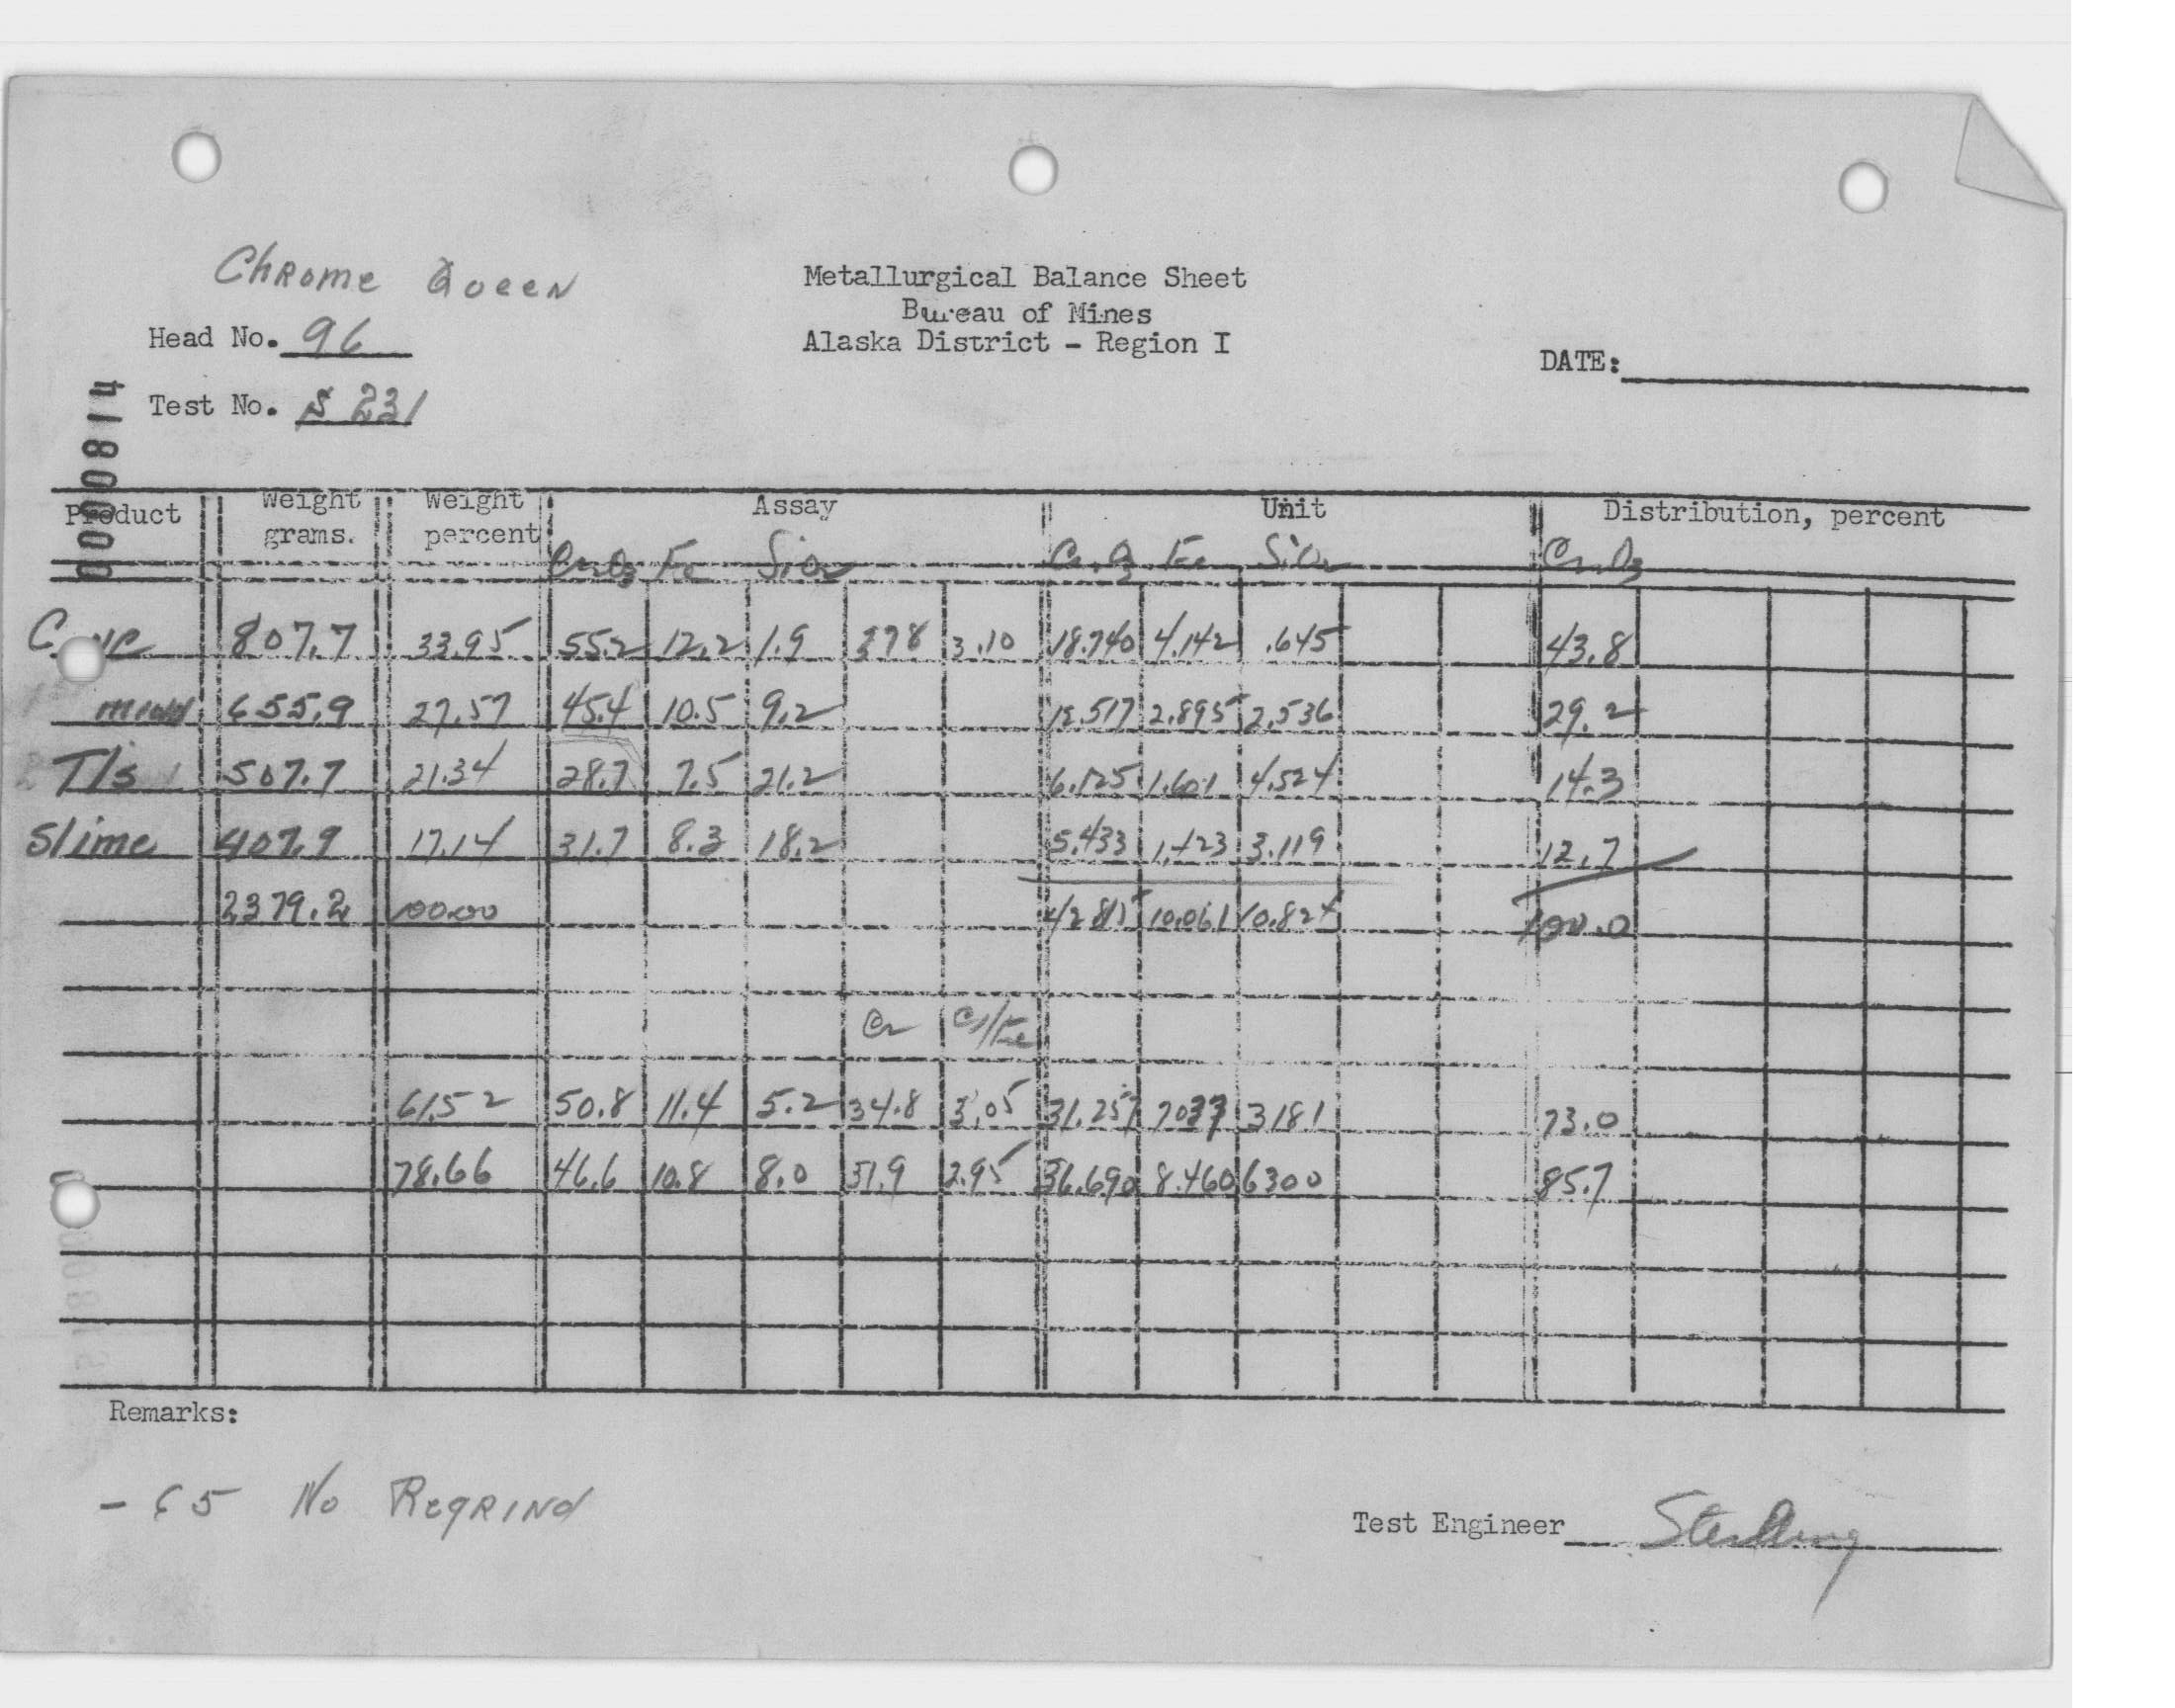 Chrome Queen
Metallurgical Balance Sheet
Bureau of Mines
Alaska District - Region I
Head No. 96
DATE:
Test No. S 231
0000814
Product Weight grams. Weight percent Assay Unit Distribution, percent
Cr2O3 Fe SiO2 Cr2O3 Fe SiO2 Cr2O3
807.7 33.95 55.2 12.2 1.9 37.8 3.10 18.740 4.142 .645 43.8
midd 655.9 27.57 45.4 10.5 9.2 12.517 2.895 2.536 29.2
Tls 507.7 21.34 28.7 7.5 21.2 6.125 1.601 4.524 14.3
Slime 407.9 17.14 31.7 8.3 18.2 5.433 1.423 3.119 12.7
2379.2 100.00 42.815 10.061 10.824 100.0
Cr Cr/Fe
61.52 50.8 11.4 5.2 34.8 3.05 31.257 7037 3181 73.0
78.66 46.6 10.8 8.0 31.9 2.95 36.690 8.460 6300 85.7
Remarks:
- 65 No Regrind
Test Engineer Sterling